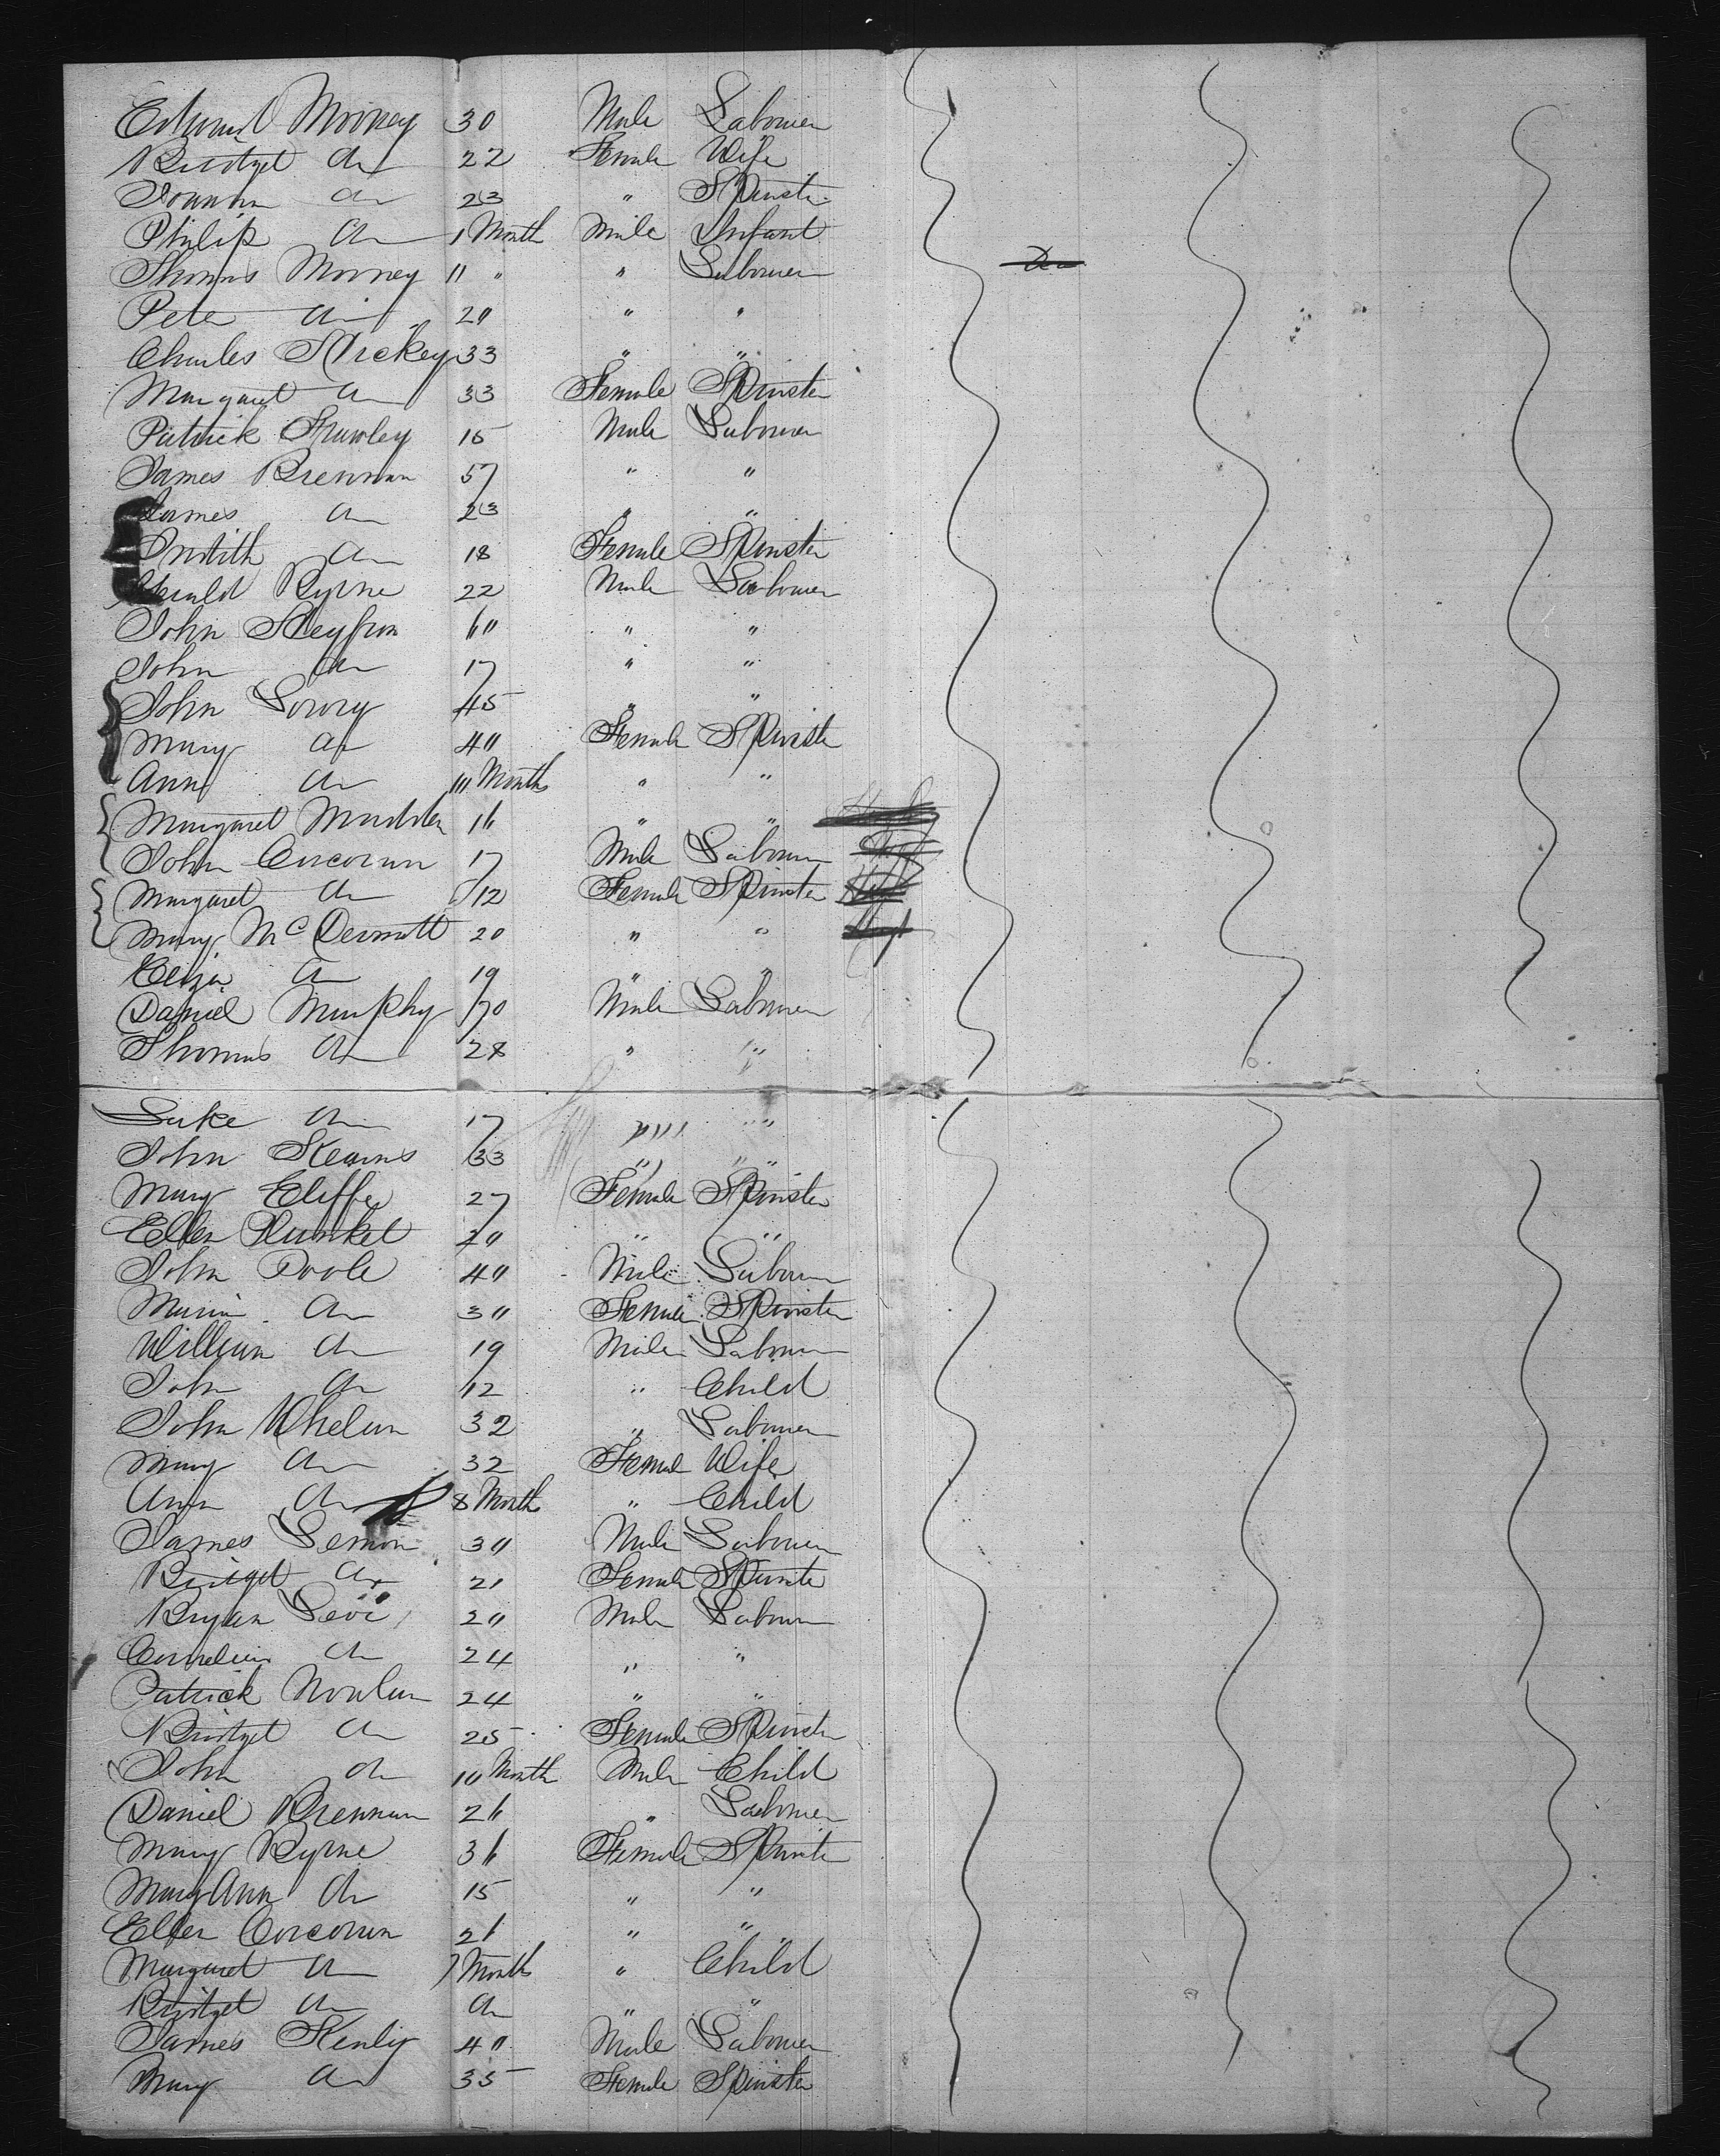 Edward Mooney 30 Male Labourer
Bridget do 22 Female Wife
Joanna do 23 " Spinster
Philip do 1 Month Male Infant
Thomas Mooney 11 " " Labourer
Peter do 20 " "
Charles Hickey 33 " "
Margaret do 33 Female Spinster
Patrick Frawley 15 Male Labourer
James Brennan 57 " "
James do 23 " "
Judith do 18 Female Spinster
Gerald Byrne 22 Male Labourer
John 60 " "
John do 17 " "
John Lowry 45 " "
Mary do 40 Female Spinster
Ann do 10 Months " "
Margaret Madden 16 " "
John Corcoran 17 Male Labourer
Margaret do 12 Female Spinster
Mary McDermott 20 " "
Eliza do 19 " "
Daniel Murphy 70 Male Labourer
Thomas do 28 " "
Luke do 17 " "
John Kearns 33 " "
Mary Cliffe 27 Female Spinster
Ellen Plunket 20 " "
John Poole 40 Male Labourer
Maria do 30 Female Spinster
William do 19 Male Labourer
John do 12 " Child
John Whelan 32 " Labourer
Mary do 32 Female Wife
Ann do 8 Month " Child
James Lemon 30 Male Labourer
Bridget do 21 Female Spinster
Bryan Levi 20 Male Labourer
Cornelius do 24 " "
Patrick Nowlan 24 " "
Bridget do 25 Female Spinster
John do 10 Month Male Child
Daniel Brennan 26 " Labourer
Mary Byrne 36 Female Spinster
Mary Ann do 15 " "
Ellen Corcoran 26 " "
Margaret do 7 Months " Child
Bridget do do " "
James Kenly 40 Male Labourer
Mary do 35 Female Spinster